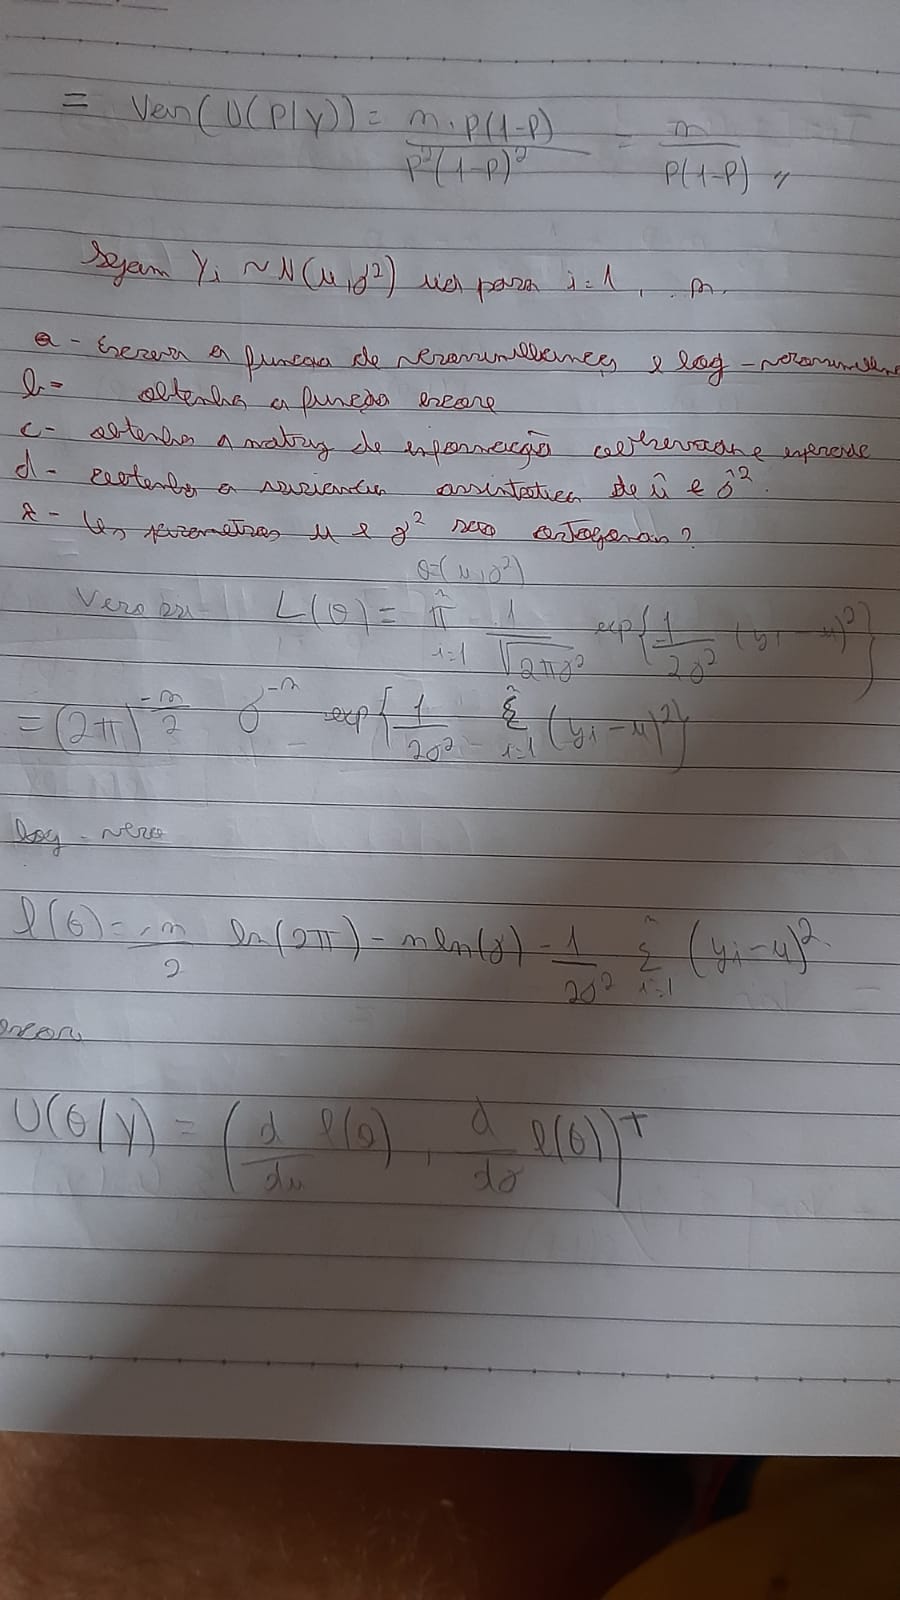 = Var(U(P/Y)) = n.P(1-P) / P²(1-P)² = n / P(1-P) //
Sejam Yi ~ N(μ,σ²) iid para i=1, .. n.
a - Escreva a função de verossimilhança e log-verossimilhan
b - obtenha a função escore
c - obtenha a matriz de informação observada e esperada
d - obtenha a variancia assintotica de û e σ̂².
e - Os parametros μ e σ² são ortogonais?
θ=(μ,σ²)
L(θ) = n π i=1 1/√2πσ² exp{-1/2σ² (yi - μ)²}
= (2π)^-n/2 σ^-n exp{1/2σ² n Σ i=1 (yi - μ)²}
log-vero
l(θ) = -n/2 ln(2π) - n ln(σ) - 1/2σ² n Σ i=1 (yi-μ)².
escore
U(θ/Y) = (d/dμ l(θ), d/dσ l(θ))^T